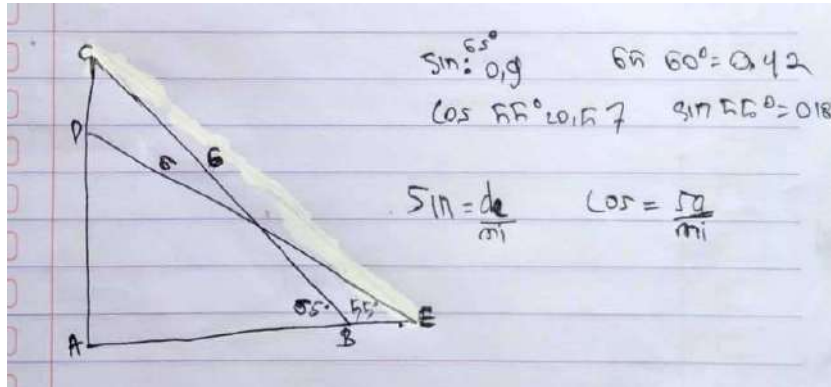 C
D
5
6
55°
55°
A
B
E
Sin: 65° 0,9
60° = 0,42
Cos 55° = 0,57
Sin 55° = 0,8
Sin = de/mi
Cos = sa/mi